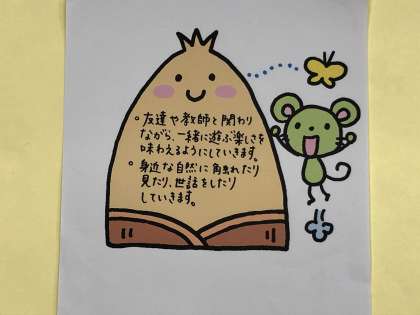 。友達や教師と関わり
ながら、一緒に遊ぶ楽しさを
味わえるようにしていきます。
。身近な自然に触れたり
見たり、世話をしたり
していきます。